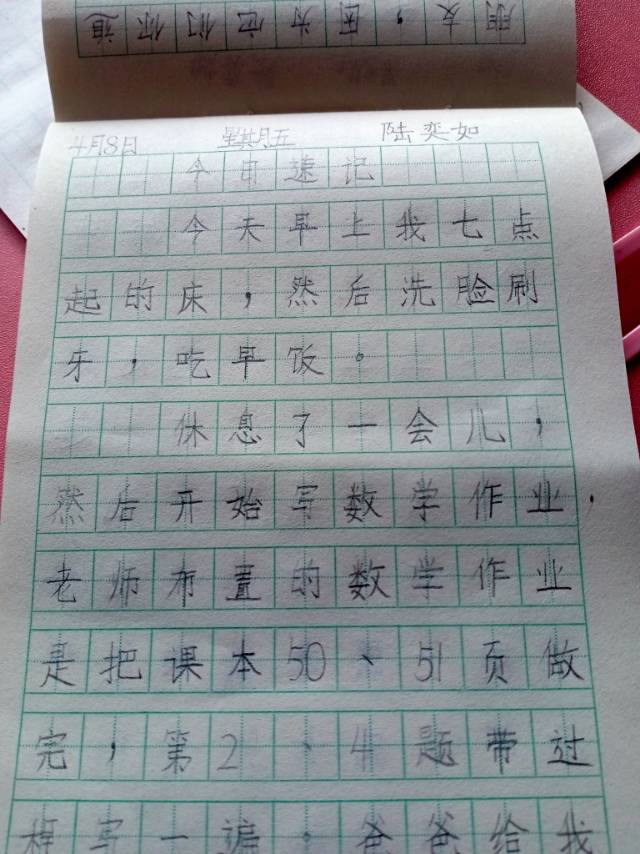 朋友，因为它们你追
4月8日 星期五 陆奕如
今日速记
今天早上我七点
起的床，然后洗脸刷
牙，吃早饭。
休息了一会儿，
然后开始写数学作业．
老师布置的数学作业
是把课本50、51页做
完，第2、4题带过
程写一遍．爸爸给我